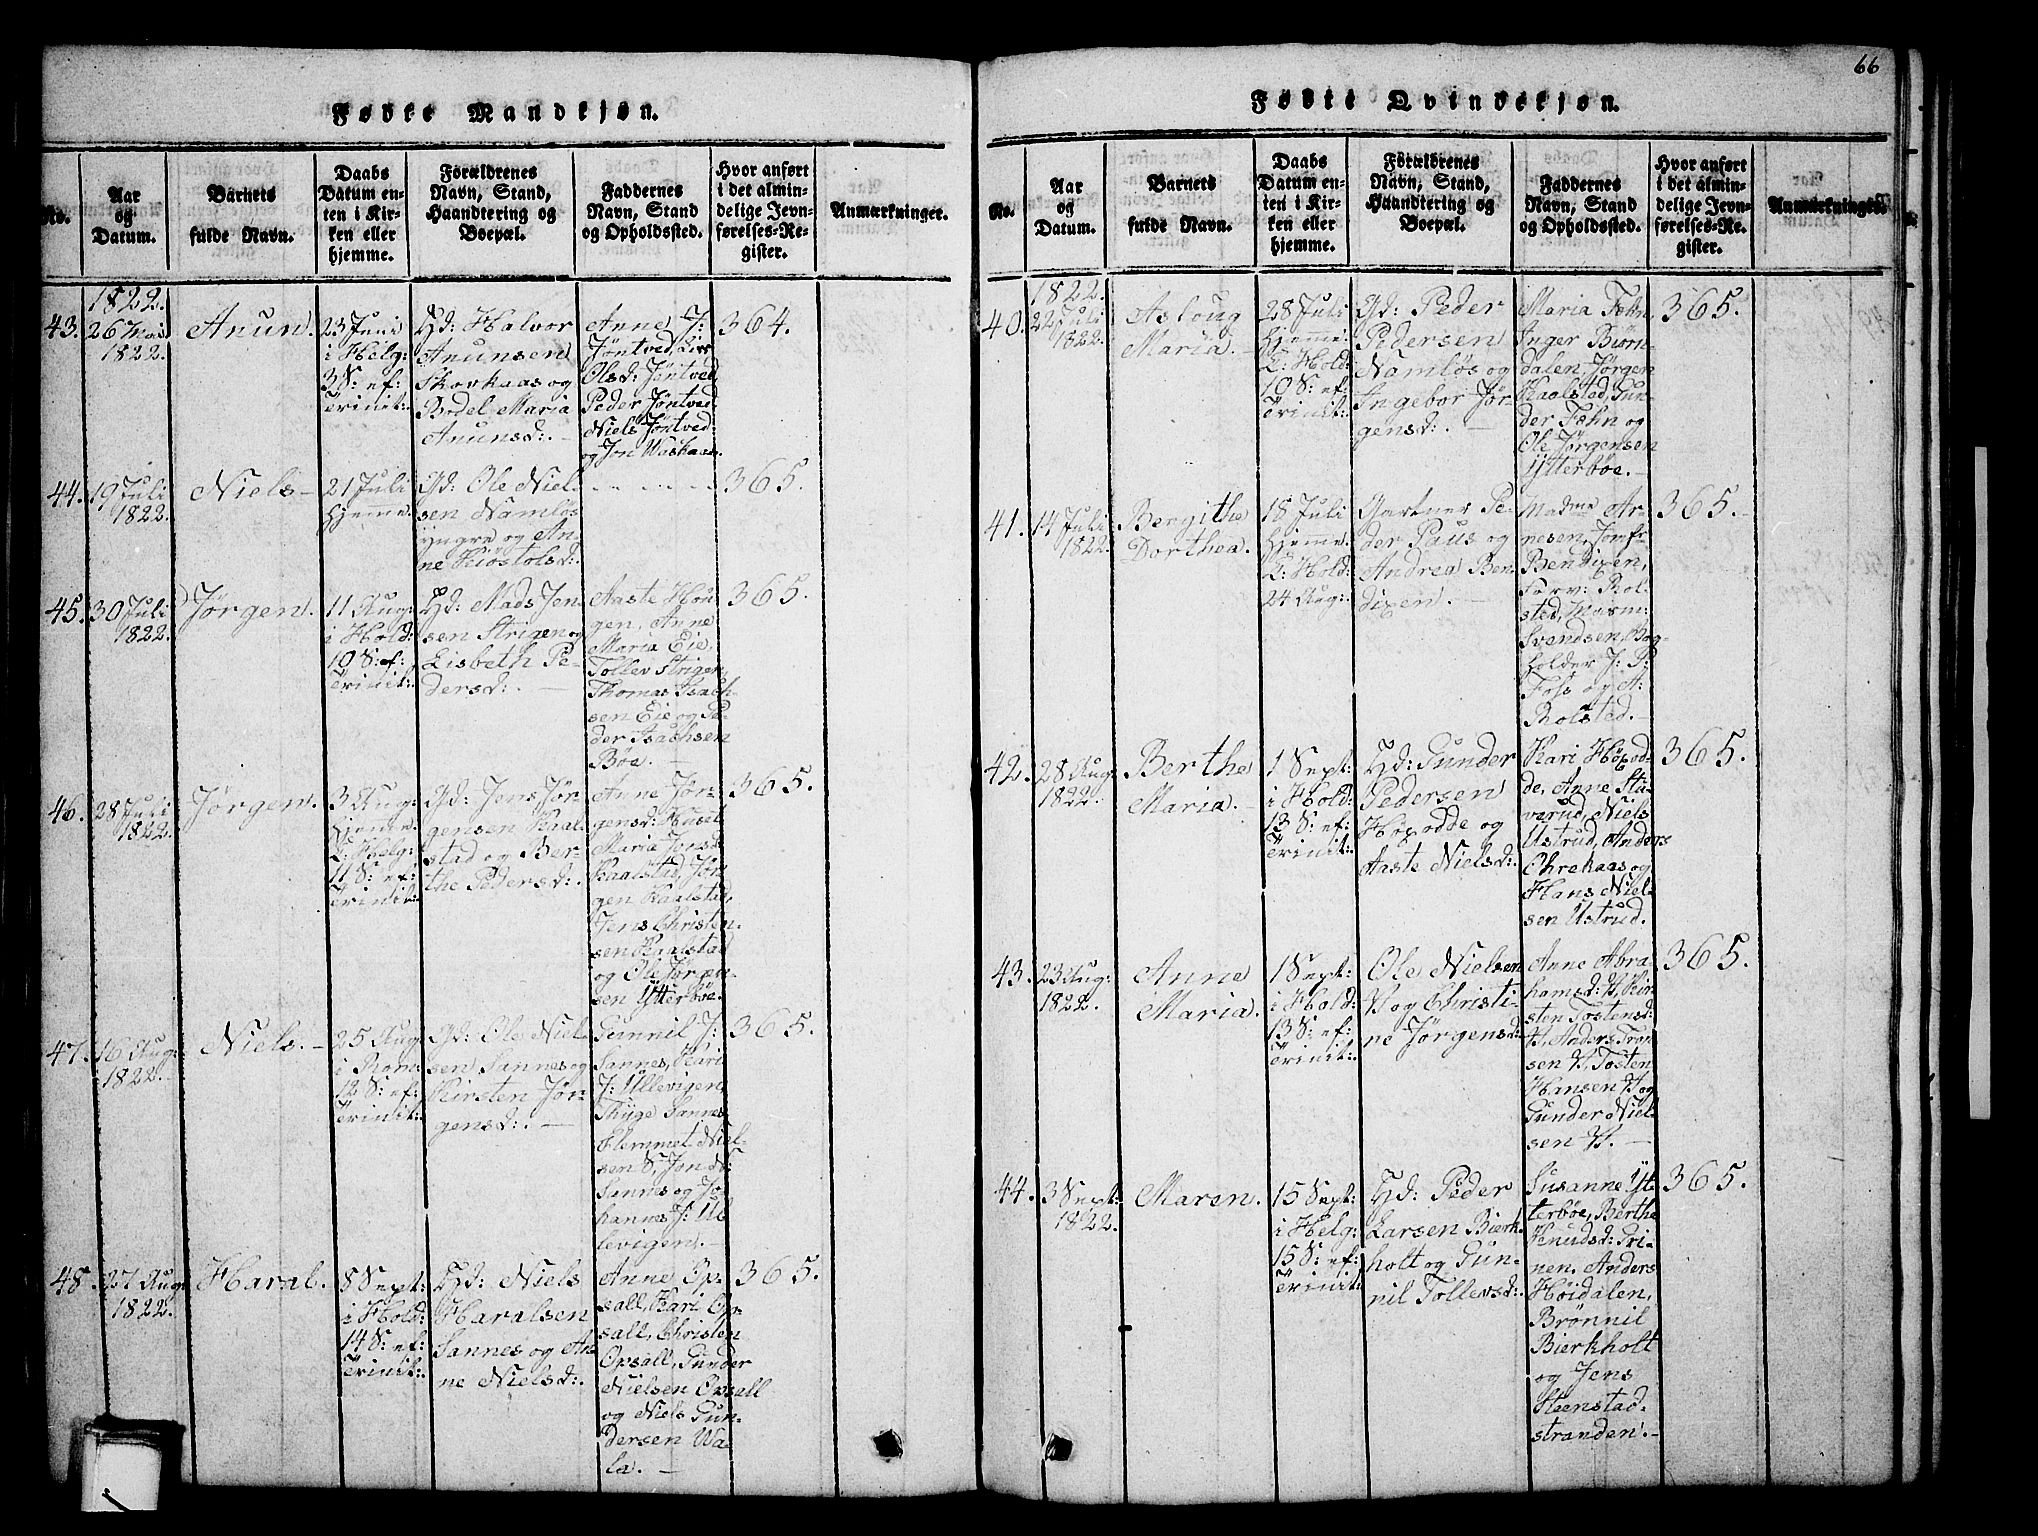 66
Fødte Mandkjøn.
No.
Aar
og
Datum.
Barnets
fulde Navn.
Daabs
Datum en-
ten i Kir-
ken eller
hjemme.
Forældrenes
Navn, Stand,
Haandtering og
Boepæl.
Faddernes
Navn, Stand
og Opholdssted.
Hvor anført
i det almin-
delige Jevn-
førelses-Re-
gister.
Anmærkninger.
1822.
43.
26 Mai
1822.
Anun.
23 Juni
i Helg:
3 S: ef:
Trinit:
Hd: Halvor
Anunsen
Skovkaas og
Bodel Maria
Anunsd:. -
Anne J:
Jöntved, Liv
Olsd: Jöntved,
Peder Jöntved
Niels Jöntved
og Jon Waskaas.
364.
44.
19 Juli
1822.
Niels -
21 Juli
hjemme.
Gd: Ole Niel-
sen Namlös
yngre og An-
ne Kiöstolsd:
365.
45.
30 Juli
1822.
Jörgen.
11 Aug:
i Hold:
10 S: ef:
Trinit:
Hd: Mads Jen-
sen Strigen og
Lisbeth Pe-
dersd:. -
Aaste Hou-
gen, Anne
Maria Eie,
Tollev Strigen,
Thomas Isach-
sen Eie og Pe-
der Isachsen
Böe. -
365.
46.
28 Juli
1822.
Jörgen.
3 Aug:
hjemme.
T: Helg:
11 S: ef:
Trinit:
Gd: Jens Jör-
gensen Kaal-
stad og Ber-
the Pedersd:.
Anne Jör-
gensd:
Maria Jensd:
Kaalstad, Jör-
gen Kaalstad,
Jens Christen-
sen Kaalstad
og Ole Jörgen-
sen Ytterböe.
365.
47.
16 Aug:
1822.
Niels. -
25 Aug:
i Rom:
12 S: ef:
Trinit:
Gd: Ole Niel-
sen Sannes og
Kirsten Jör-
gensd:. -
Gunnil J:
Sannes, Kari
J: Ullevigen,
Thyge Sannes,
Klemmet Niel-
sen S, Jon N:
Sannes og Jo-
hannes J: Ul-
levigen. -
365.
48.
27 Aug:
1822.
Haral.
8 Sept:
i Hold:
14 S: ef:
Trinit:
Hd: Niels
Haralsen
Sannes og An-
ne Nielsd:.
Anne Op-
sall, Kari Op-
sall, Christen
Opsall, Gunder
Nielsen Opsall
og Niels Gun-
dersen Wa-
la. -
365.
Fødte Qvindekjøn.
No.
Aar
og
Datum.
Barnets
fulde Navn.
Daabs
Datum en-
ten i Kir-
ken eller
hjemme.
Forældrenes
Navn, Stand,
Haandtering og
Boepæl.
Faddernes
Navn, Stand
og Opholdssted.
Hvor anført
i det almin-
delige Jevn-
førelses-Re-
gister.
Anmærkninger.
1822.
40.
22 Juli
1822.
Asloug
Maria. -
28 Juli
hjemme.
T: Hold:
10 S: ef:
Trinit:
Gd: Peder
Pedersen
Namlös og
Ingebor Jör-
gensd:. -
Maria Fehn,
Inger Biörn-
dalen, Jörgen
Kaalstad, Gun-
der Fehn og
Ole Jörgensen
Ytterböe. -
365.
41.
14 Juli
1822.
Bergithe
Dorthea.
18 Juli
hjemme.
T: Hold:
24 Aug:
Gartner Pe-
der Paus og
Andrea Ben-
dixen. -
Madme Ar-
nesen, Jomfr:
Bendixen,
Forv: Rol-
sted,
Svendsen, Bog-
holder J: P:
Foss og A:
Rolsted. -
365. -
42.
28 Aug:
1822.
Berthe
Maria. -
1 Sept:
i Hold:
13 S: ef:
Trinit:
Hd: Gunder
Pedersen
Höxodde og
Aaste Nielsd:.
Kari Höxod-
de, Anne Sta-
verud, Niels
Ustrud, Anders
Ohrekaas og
Hans Niel-
sen Ustrud.
365.
43.
23 Aug:
1822.
Anne
Maria.
1 Sept:
i Hold:
13 S: ef:
Trinit:
Ole Nielsen
V og Christi-
ne Jörgensd:
Anne Abra-
hamsd: V, Kir-
sten Tostensd:
V, Anders Tron-
sen V, Tosten
Hansen V og
Gunder Niel-
sen V. -
365.
44.
3 Sept:
1822.
Maren.
15 Sept:
i Helg:
15 S: ef:
Trinit:
Hd: Peder
Larsen Bierk-
holt og Gun-
nil Tollevsd:.
Susanne Yt-
terböe, Berthe
Knudsd: Gri-
nen, Anders
Höidalen,
Brönnil
Bierkholt
og Jens
Steenstad-
stranden. -
365.